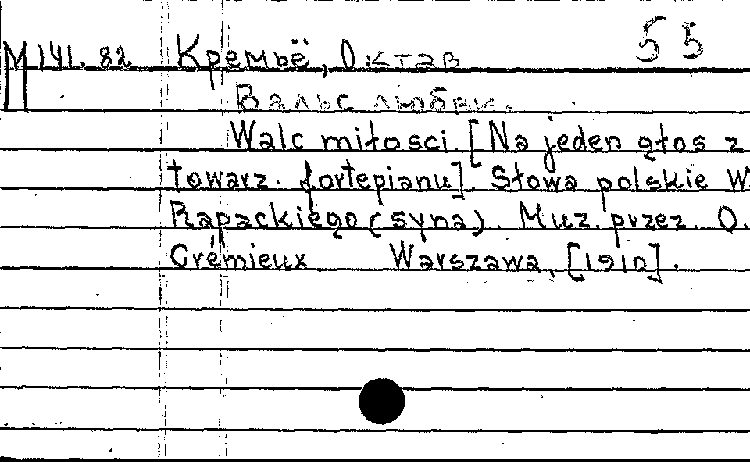 М 141. 82 Кремьё, Октав 55
Вальс любви.
Walc miłości. [Na jeden głos z
towarz. fortepianu]. Słowa polskie W
Rapackiego (syna). Muz. przez O.
Crémieux Warszawa, [1910].